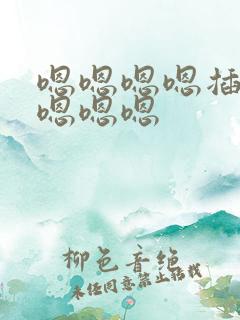 嗯嗯嗯嗯插
嗯嗯嗯
柳色音绝
未经同意禁止转载